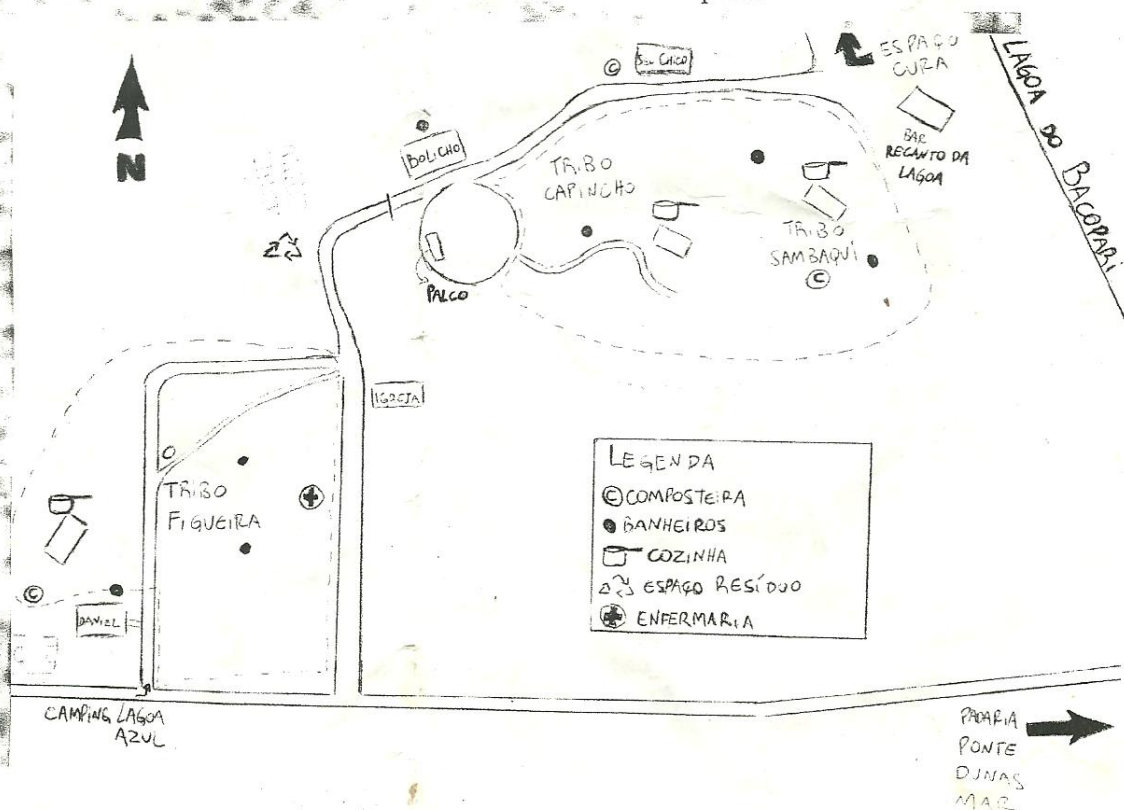 SEU CHICO
ESPAÇO
CURA
LAGOA DO BACOPARI
BAR
RECANTO DA
LAGOA
BOLICHO
TRIBO
CAPINCHO
TRIBO
SAMBAQUÍ
PALCO
N
IGREJA
TRIBO
FIGUEIRA
DANIEL
CAMPING LAGOA
AZUL
LEGENDA
© COMPOSTEIRA
BANHEIROS
COZINHA
ESPAÇO RESÍDUO
ENFERMARIA
PADARIA
PONTE
DUNAS
MAR
©
©
©